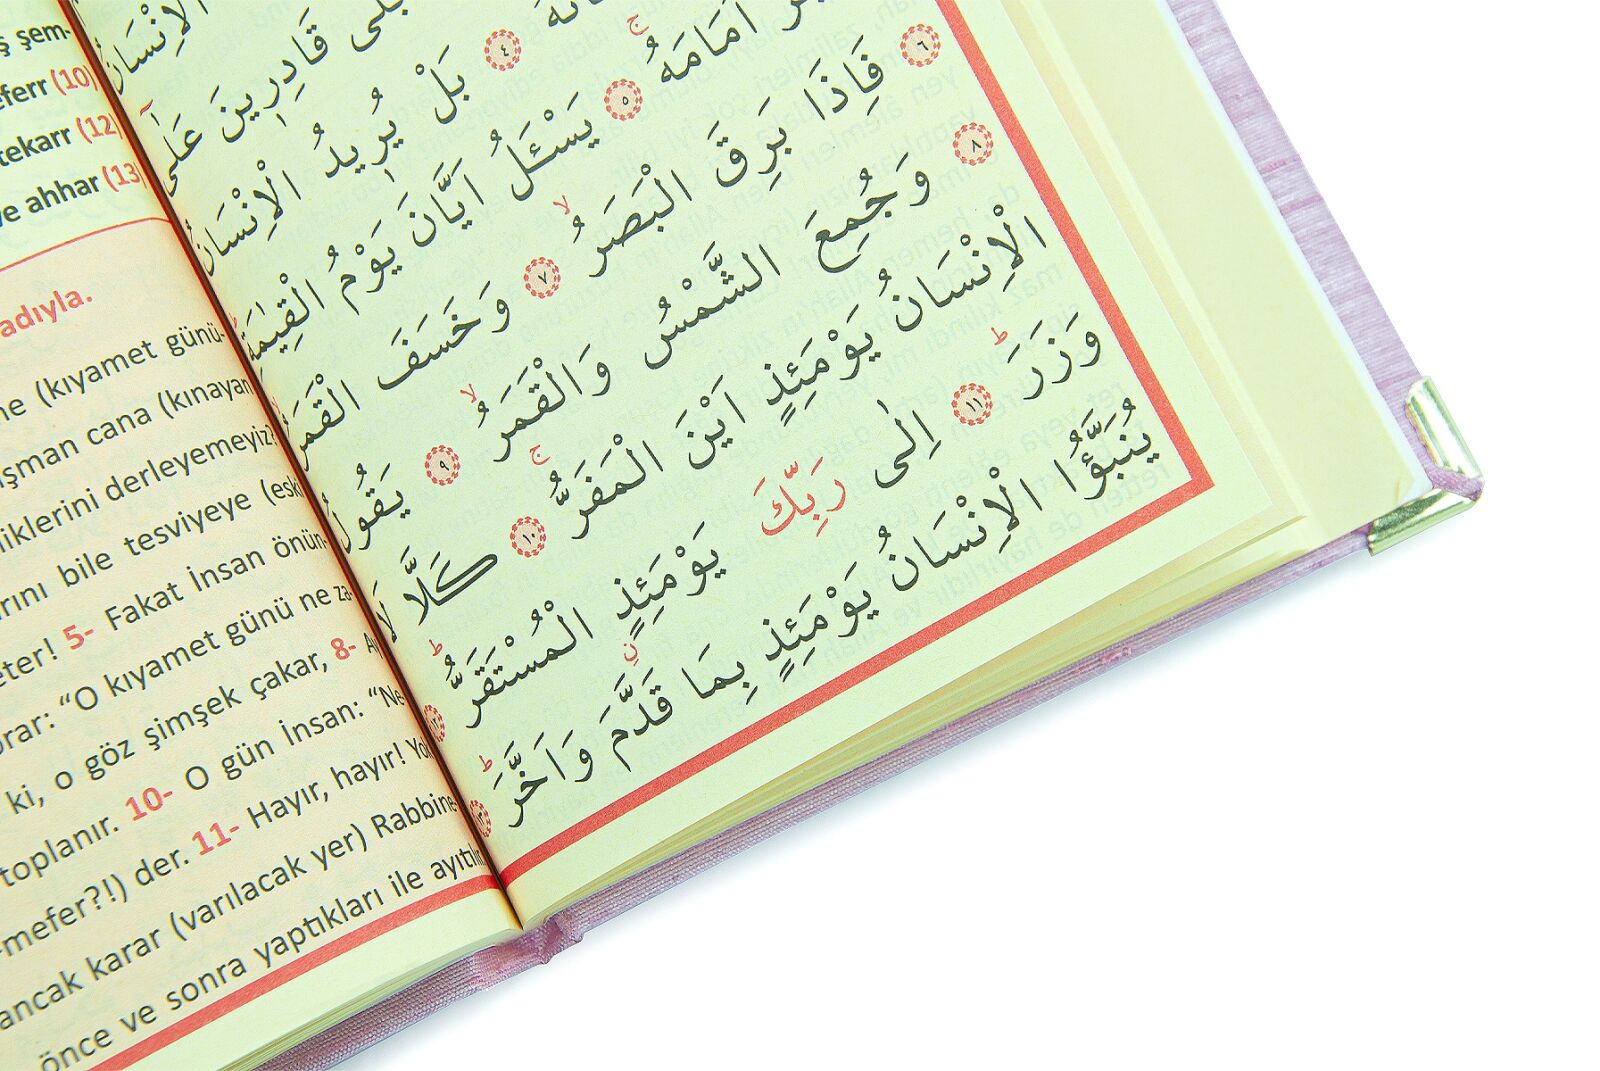 ş şem-
eferr (10)
tekarr (12)
ve ahhar (13)
adıyla.
ne (kıyamet günü-
şman cana (kınayan
liklerini derleyemeyiz?
rını bile tesviyeye (esk
eter! 5- Fakat İnsan önün-
orar: “O kıyamet günü ne za-
ki, o göz şimşek çakar, 8- Ay
toplanır. 10- O gün İnsan: “Ne
-mefer?!) der. 11- Hayır, hayır! Yo
ancak karar (varılacak yer) Rabbine
önce ve sonra yaptıkları ile ayıtılır
الْاِنْسَانُ
بَلٰى قَادِرِينَ عَلٰٓى
٤ بَلْ يُرِيدُ الْاِنْسَانُ
اَمَامَهُ ٥ يَسْـَٔلُ اَيَّانَ يَوْمُ الْقِيٰمَةِ
٦ فَاِذَا بَرِقَ الْبَصَرُ ٧ وَخَسَفَ الْقَمَرُ
٨ وَجُمِعَ الشَّمْسُ وَالْقَمَرُ ٩ يَقُولُ
الْاِنْسَانُ يَوْمَئِذٍ اَيْنَ الْمَفَرُّ ١٠ كَلَّا لَا
وَزَرَ ١١ اِلٰى رَبِّكَ يَوْمَئِذٍ الْمُسْتَقَرُّ ١٢
يُنَبَّؤُا الْاِنْسَانُ يَوْمَئِذٍ بِمَا قَدَّمَ وَاَخَّرَ ١٣